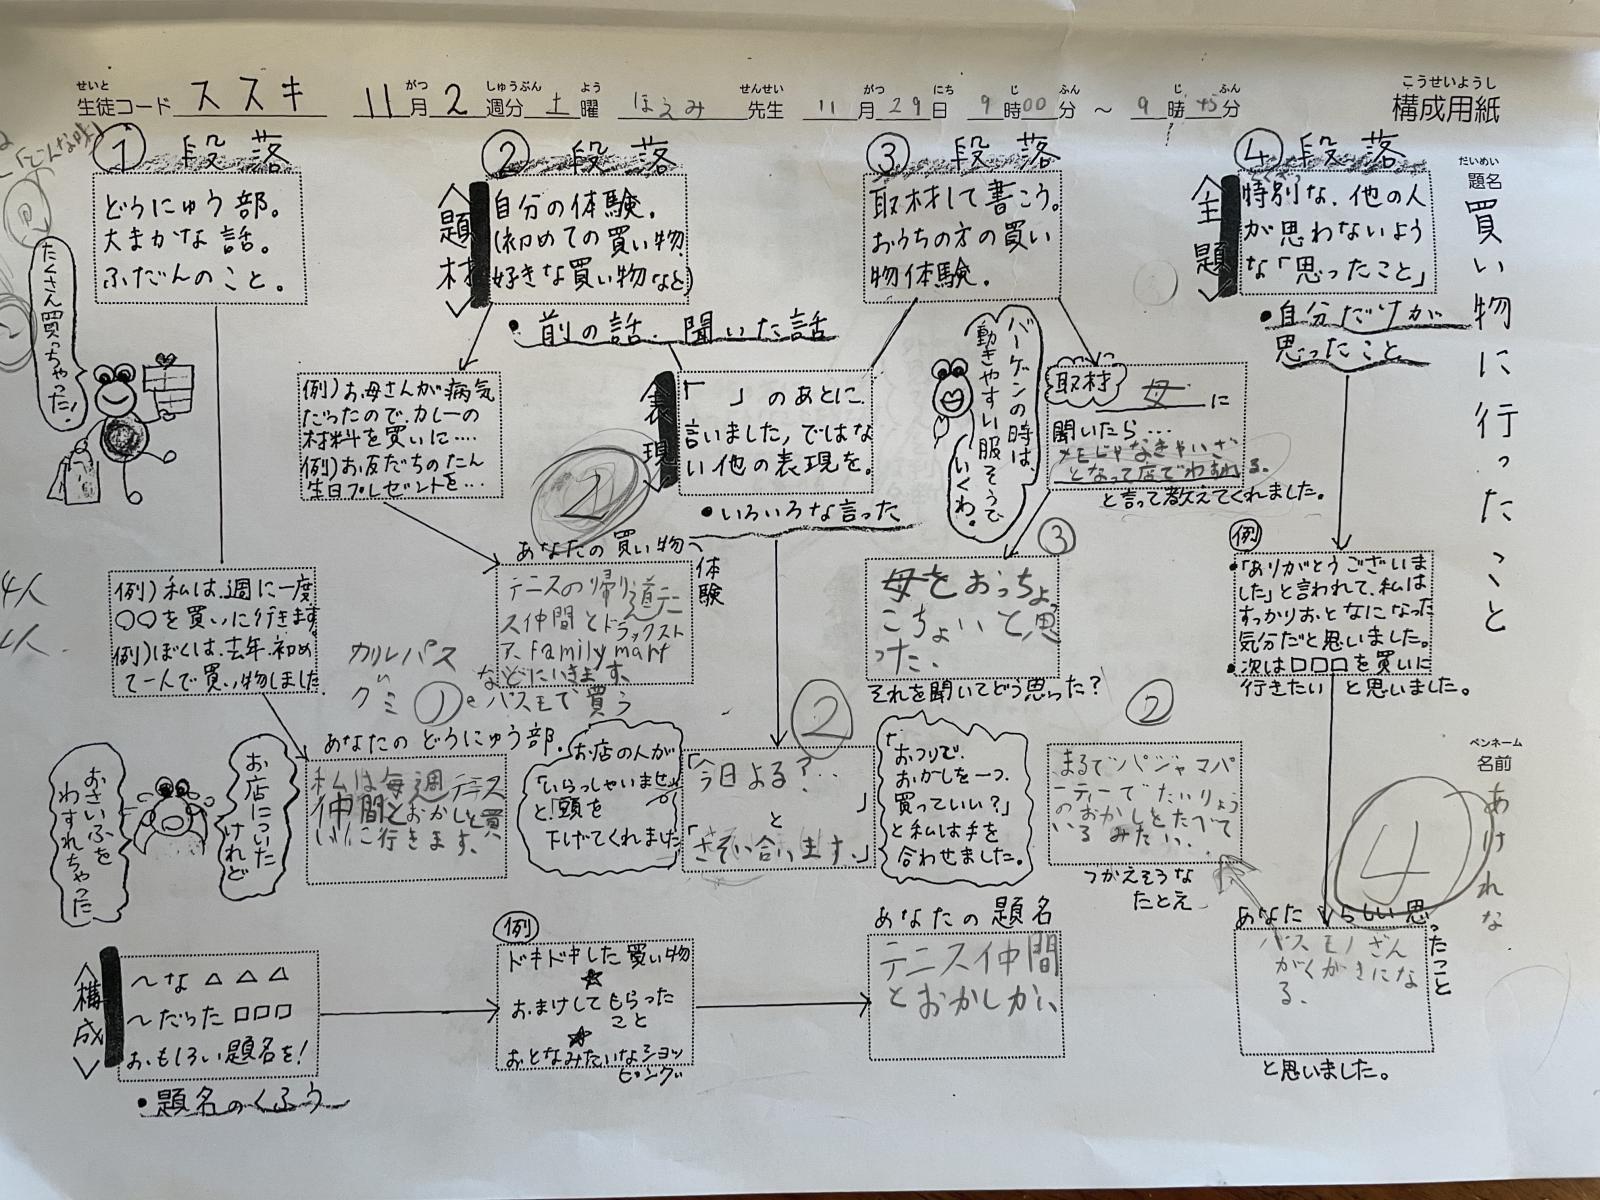 こうせいようし
構成用紙
せいと
生徒コード ススキ 11月 2週分 土曜 ほえみ 先生 11月29日 9時00分〜9時45分
がつ しゅうぶん よう せんせい がつ にち じ ふん じ ふん
だいめい
題名
買い物に行ったこと
ペンネーム
名前
あけれな
① 段落
どうにゅう部。
大まかな話。
ふだんのこと。
たくさん買っちゃった!
例)私は、週に一度
○○を買いに行きます。
例)ぼくは、去年、初め
て一人で買い物しました
あなたのどうにゅう部。
私は毎週テニス
仲間とおかしを買
いに行きます。
お店についた
けれど
おさいふを
わすれちゃった
② 段落
<題材>
自分の体験。
(初めての買い物、
好きな買い物など)
・前の話、聞いた話
例)お母さんが病気
だったので、カレーの
材料を買いに‥‥
例)お友だちのたん
生日プレゼントを‥‥
あなたの買い物体験
テニスの帰り道テニ
ス仲間とドラックスト
ア、family mart
などにいきます。
カルパス
グミ
①
パスモで買う
<表現>
「 」のあとに、
言いました、ではな
い他の表現を。
・いろいろな言った
お店の人が
「いらっしゃいませ」
と頭を
下げてくれました
②
「今日よる?‥
」
と
「さそい合います。」
「おつりで、
おかしを一つ、
買っていい?」
と私は手を
合わせました。
③ 段落
取材して書こう。
おうちの方の買い
物体験。
バーゲンの時は、
動きやすい服そうで
いくわ。
取材
母に
聞いたら…
メモしなきゃいざ
となって店でわすれる。
と言って教えてくれました。
③
母をおっちょ
こちょいと思
った、
それを聞いてどう思った?
②
まるでパジャマパ
ーティーでたいりょう
のおかしをたべて
いるみたい、
つかえそうな
たとえ
④ 段落
<主題>
特別な、他の人
が思わないよう
な「思ったこと」
・自分だけが
思ったこと
例
・「ありがとうございま
した」と言われて、私は
すっかりおとなになった
気分だと思いました。
・次は□□□を買いに
行きたい と思いました。
④
あなたらしい思ったこと
パスモノざん
がくがきにな
る、
と思いました。
<構成>
〜な△△△
〜だった□□□
おもしろい題名を!
・題名のくふう
例
ドキドキした買い物
★
おまけしてもらった
こと
★
おとなみたいなショッ
ピング
あなたの題名
テニス仲間
とおかしかい